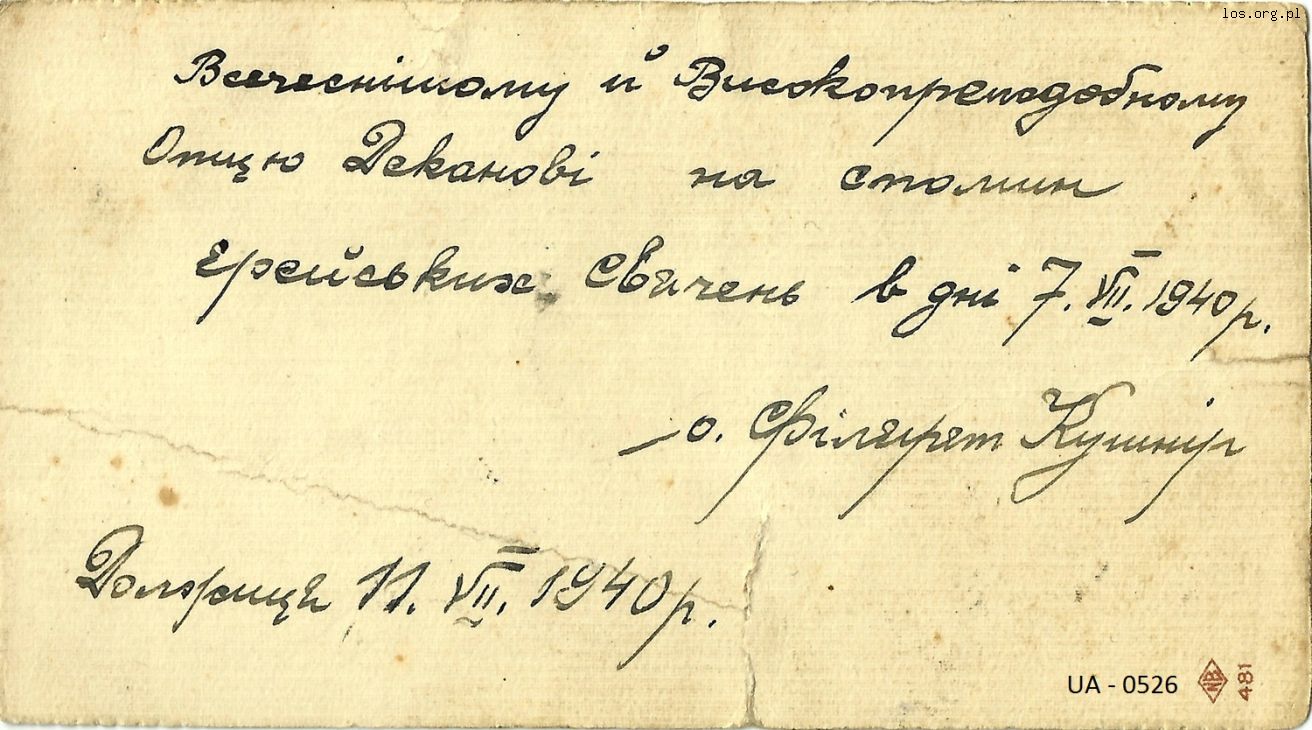 los.org.pl
Всечеснішому й Високопреподобному
Отцю Деканові на спомин
єрейських свячень в дні 7. VII. 1940 р.
о. Філярет Кушнір
11. VII. 1940 р.
UA - 0526
NB
481